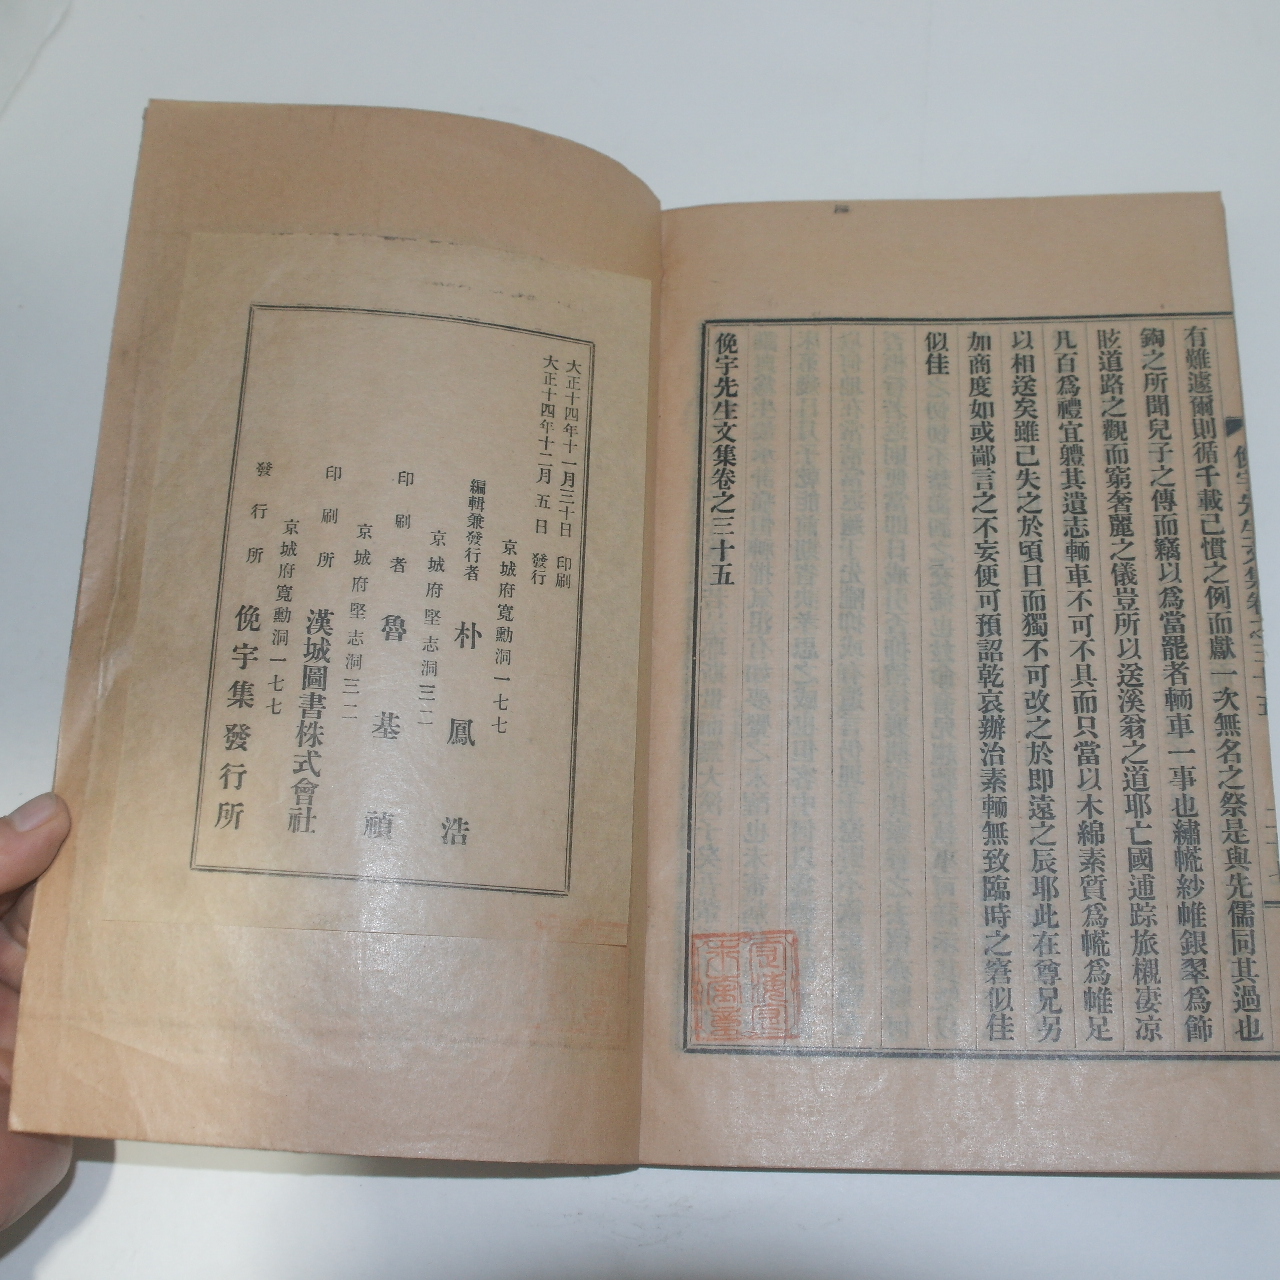 俛宇先生文集卷之三十五
有難遽爾則循千載已慣之例而獻一次無名之祭是與先儒同其過也
鋾之所聞兒子之傳而竊以爲當罷者輀車一事也繡幌紗帷銀翠爲節
眩道路之觀而窮奢麗之儀豈所以送溪翁之道耶亡國逋踪旅櫬凄凉
凡百爲禮宜軆其遺志輀車不可不具而只當以木綿素質爲幌爲帷足
以相送矣雖已失之於頃日而獨不可改之於即遠之辰耶此在尊兄另
加商度如或鄙言之不妄便可預詔乾哀辦治素輀無致臨時之窘似佳
似佳
俛宇先生文集卷之三十五
大正十四年十一月三十日 印刷
大正十四年十二月五日 發行
京城府寬勳洞一七七
編輯兼發行者 朴鳳浩
京城府堅志洞三二
印刷者 魯基禎
京城府堅志洞三二
印刷所 漢城圖書株式會社
京城府寬勳洞一七七
發行所 俛宇集發行所